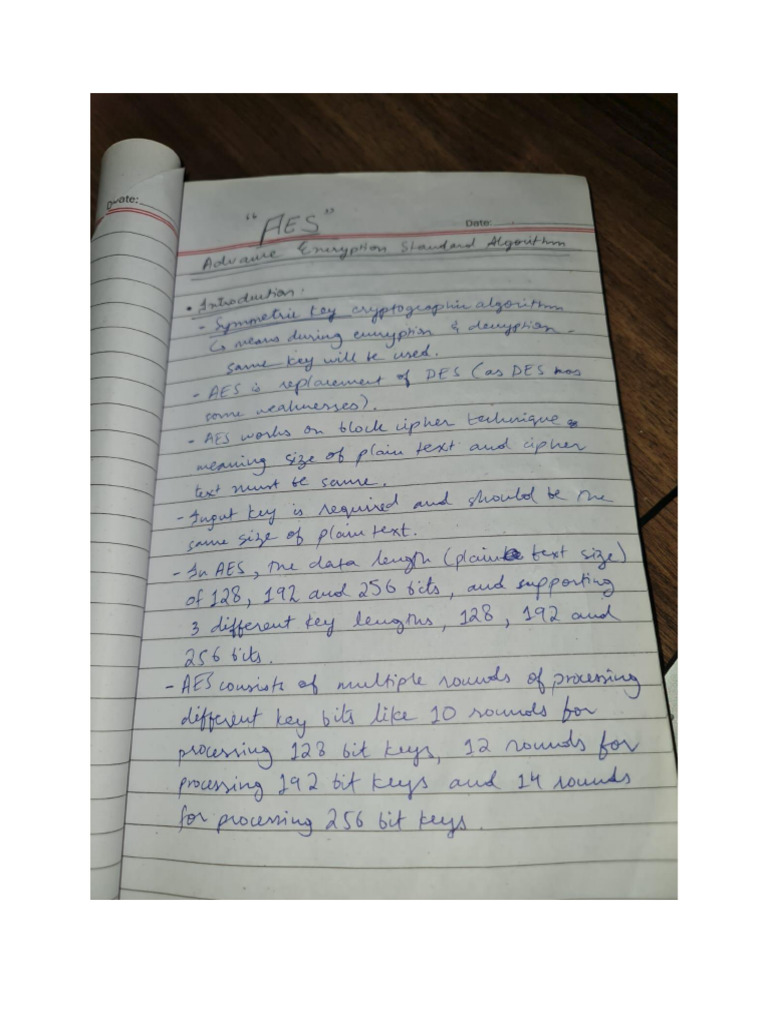 Date:
Date:
"AES"
Advance Encryption Standard Algorithm
• Introduction.
- Symmetric key cryptographic algorithm
↳ means during encryption & decryption
same key will be used.
- AES is replacement of DES (as DES has
some weaknesses).
- AES works on block cipher technique
meaning size of plain text and cipher
text must be same.
- Input key is required and should be the
same size of plain text.
- In AES, the data length (plain text size)
of 128, 192 and 256 bits, and supporting
3 different key lengths, 128, 192 and
256 bits.
- AES consists of multiple rounds of processing
different key bits like 10 rounds for
processing 128 bit keys, 12 rounds for
processing 192 bit keys and 14 rounds
for processing 256 bit keys.